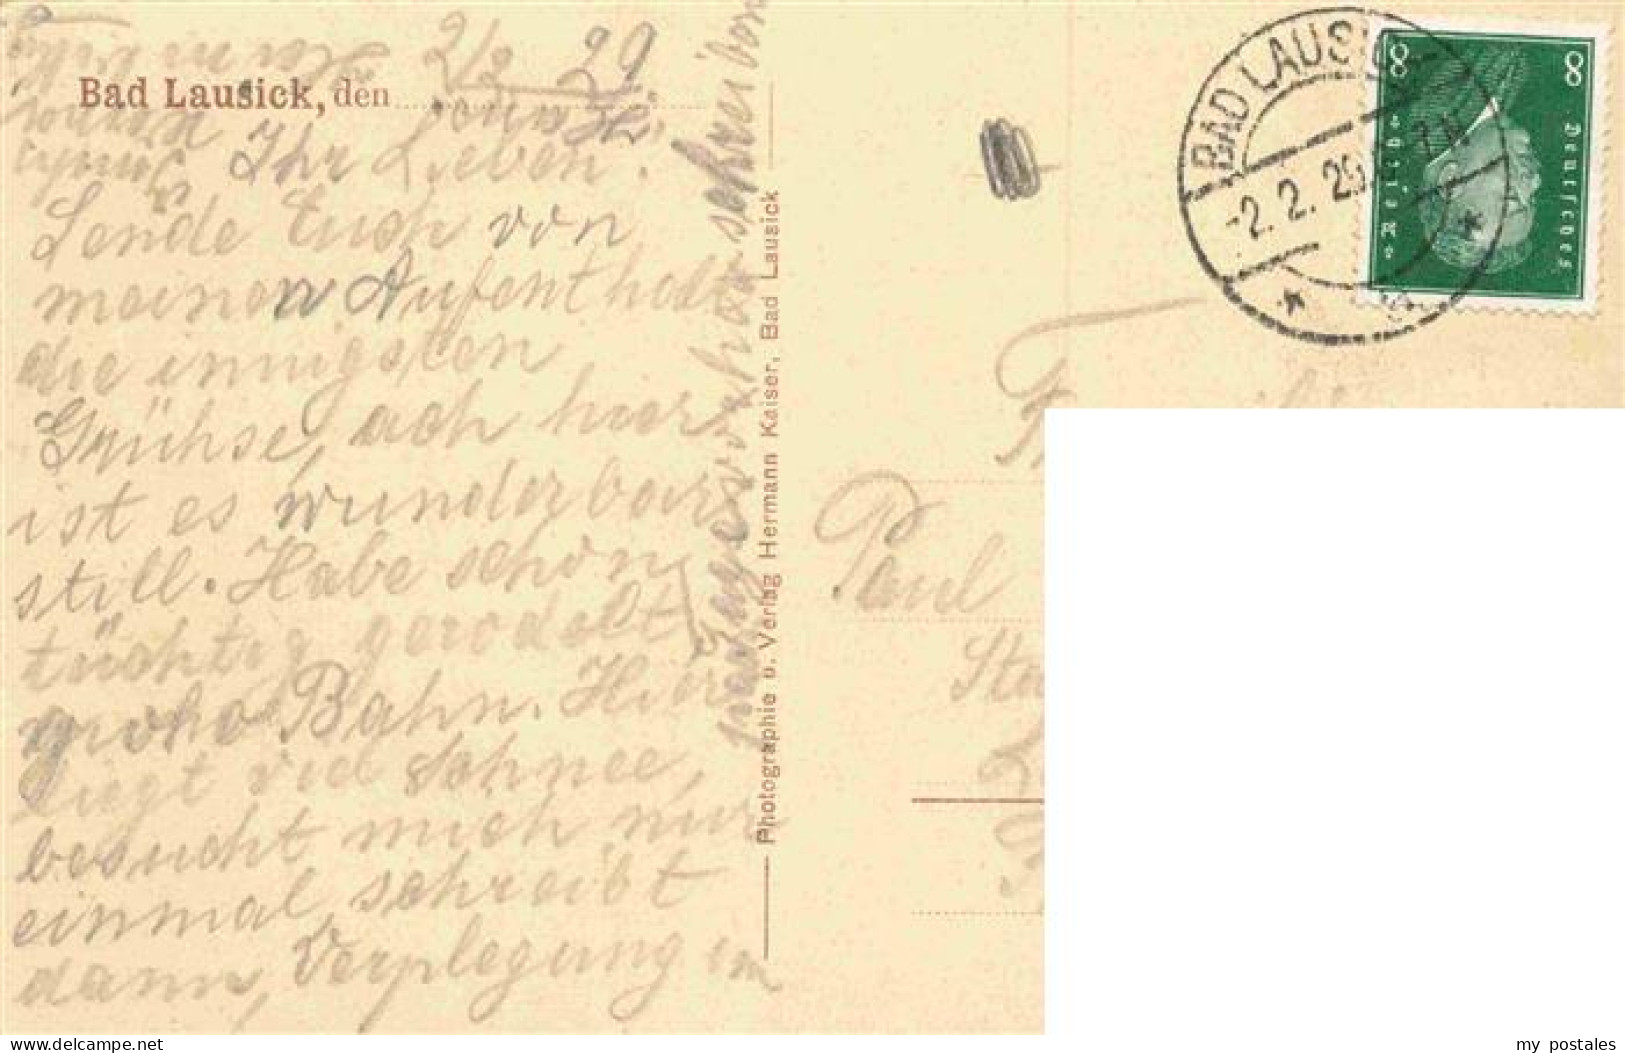 Bad Lausick, den 2/2 29.
Ihr Lieben.
Sende Euch von
meinen Aufenthalt
die innigsten
Grühse, ach hier
ist es wunderbar
still. Habe schon
tüchtig gerodelt,
grohse Bahn. Hier
liegt viel Schnee,
besucht mich nur
einmal, schreibt
dann, Verplegung im
vorher schreiben
Photographie u. Verlag Hermann Kaiser, Bad Lausick
BAD LAUSICK
-2.2.29
8 8
Deutsches
Reich
Paul
delcampe.net
my_postales